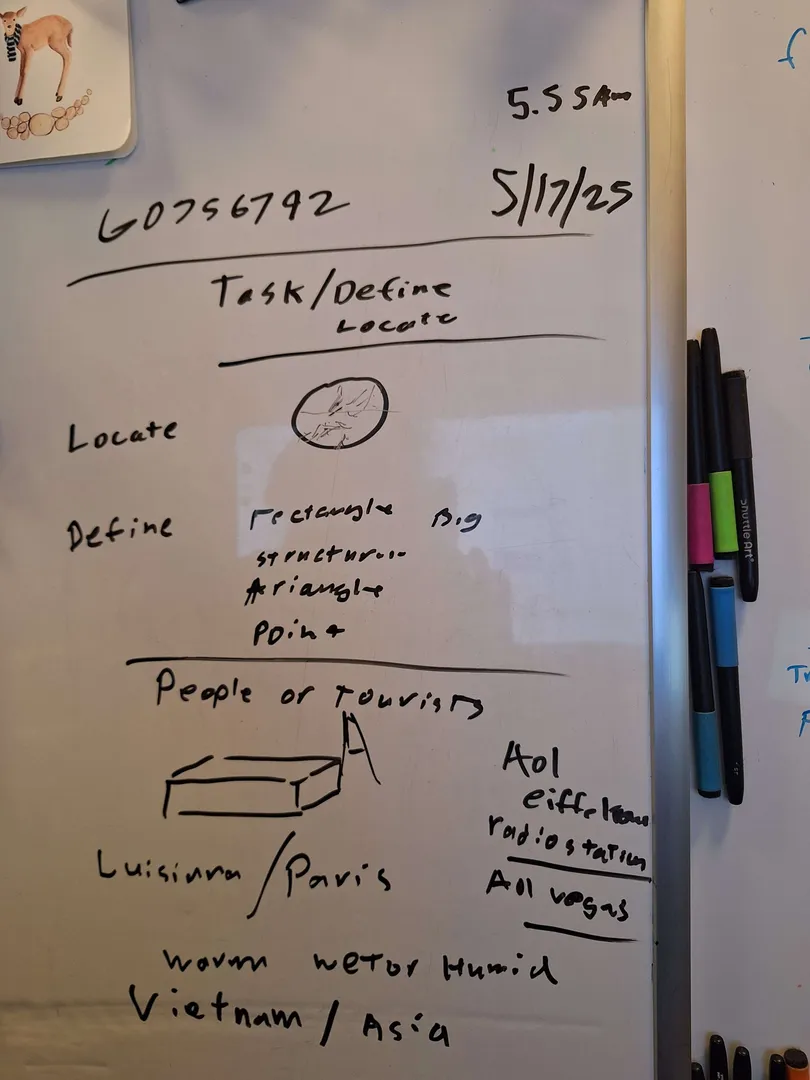 5.55 Am
60756792
5/17/25
Task/Define
Locate
Locate
Define
rectangle Big
structure
triangle
Point
People or tourists
Aol
radio station
Luisinna/Paris
Aol vegas
warm wet or Humid
Vietnam / Asia
shuttle Art